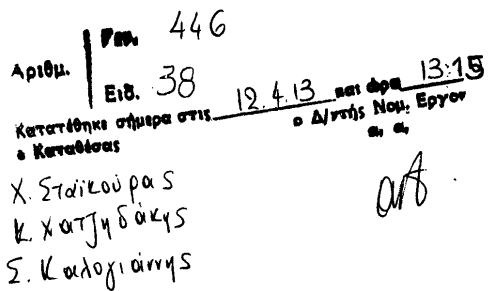 Αριθμ.
Γεν. 446
Ειδ. 38
Κατατέθηκε σήμερα στις 12.4.13 και ώρα 13:15
ο Καταθέσας
ο Δ/ντής Νομ. Εργου
α. α.
Χ. Σταϊκούρας
Κ. Χατζηδάκης
Σ. Καλογιάννης